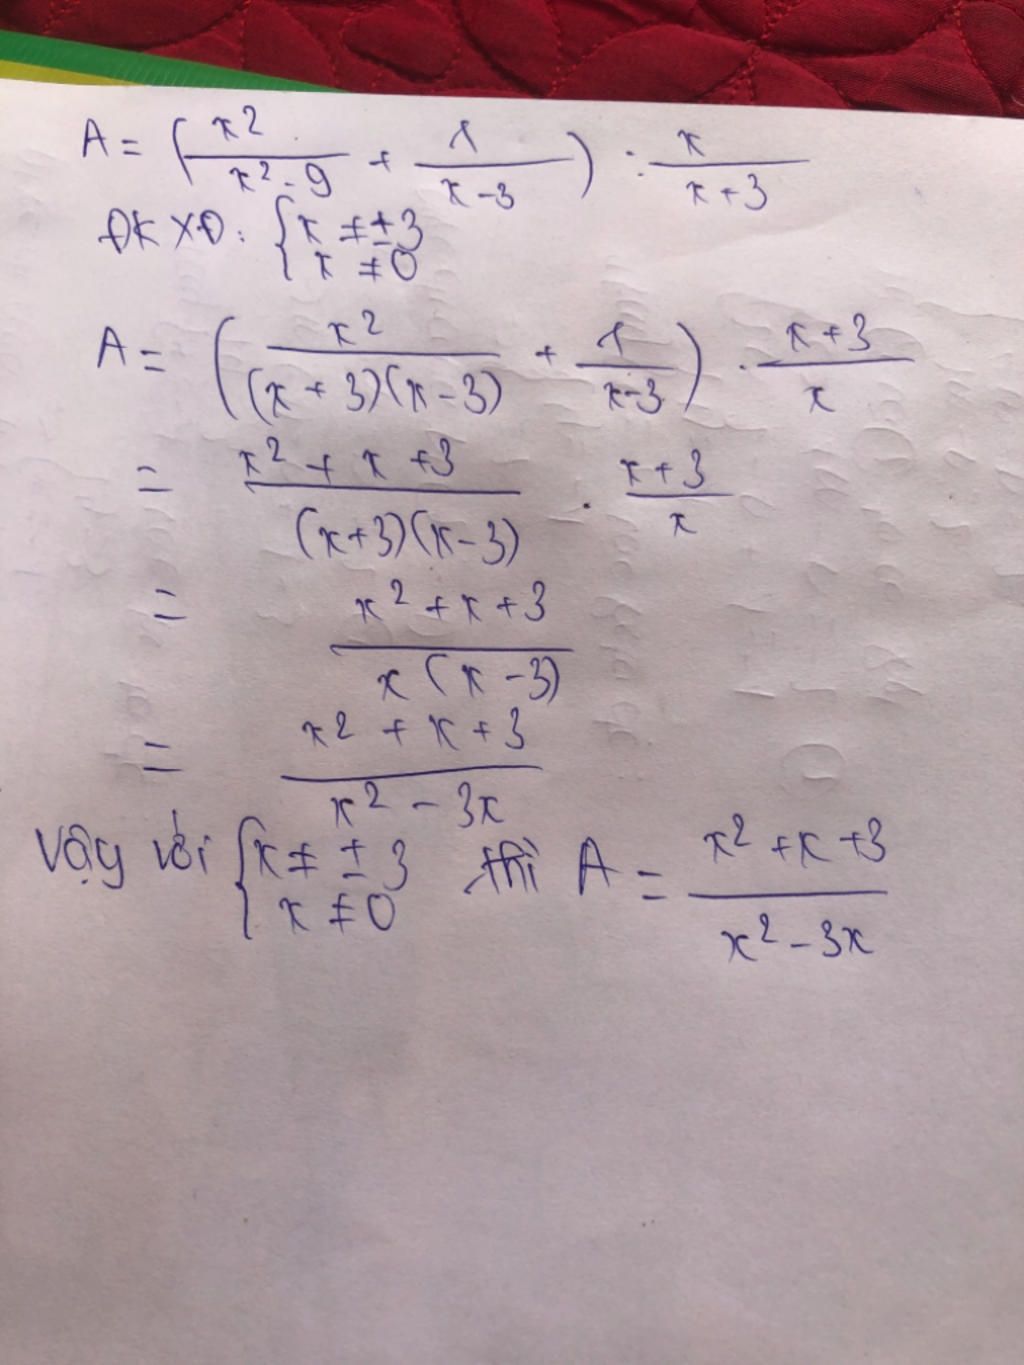 A = ( x² / (x² - 9) + 1 / (x - 3) ) : x / (x + 3)
ĐKXĐ: { x ≠ ±3
x ≠ 0
A = ( x² / ((x + 3)(x - 3)) + 1 / (x - 3) ) . (x + 3) / x
= (x² + x + 3) / ((x + 3)(x - 3)) . (x + 3) / x
= (x² + x + 3) / (x(x - 3))
= (x² + x + 3) / (x² - 3x)
Vậy với { x ≠ ±3 thì A = (x² + x + 3) / (x² - 3x)
x ≠ 0